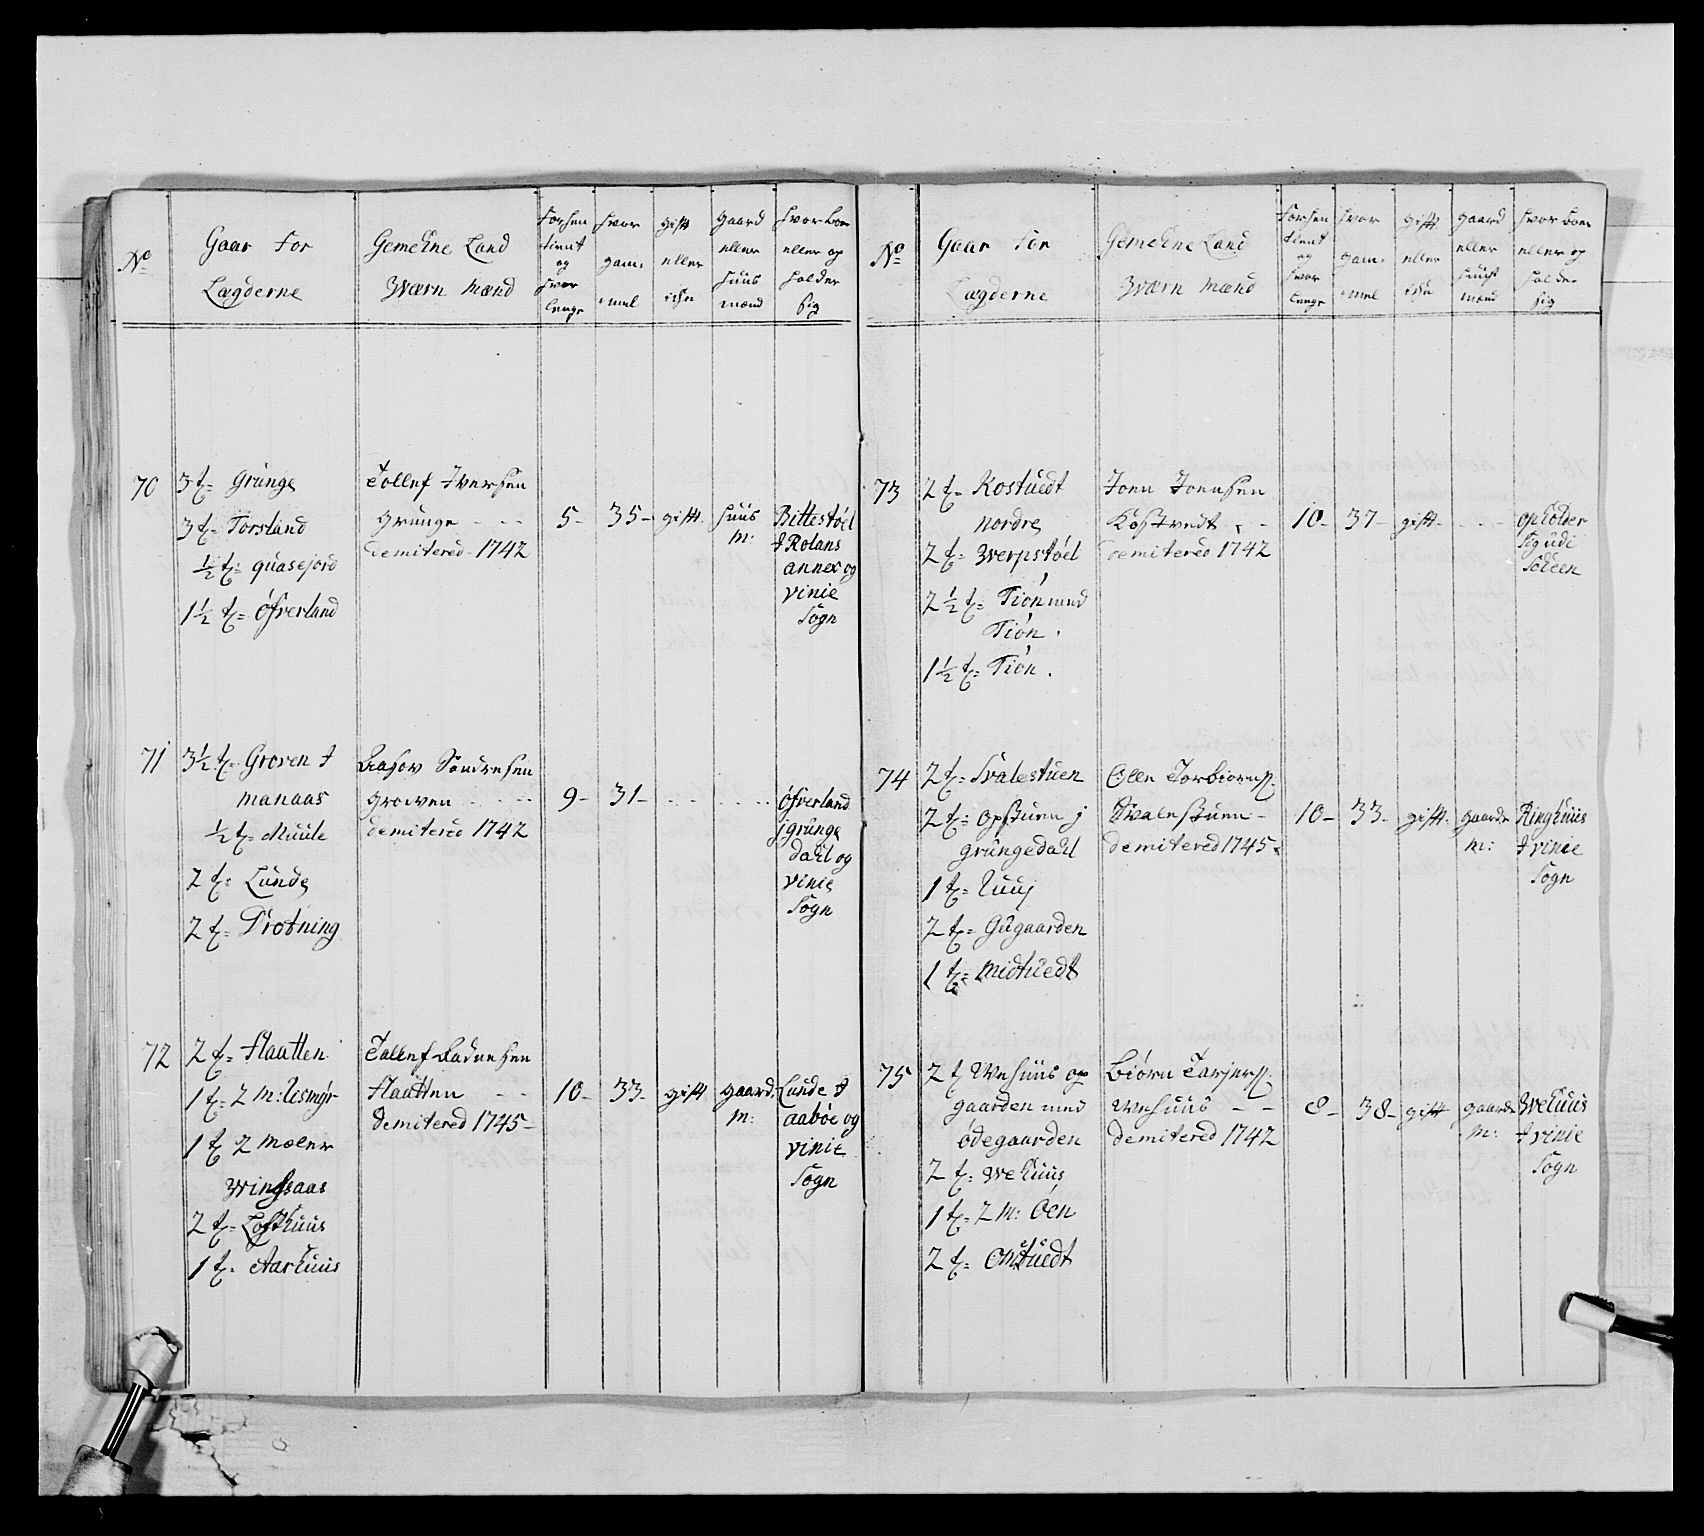 No
Gaar for
Lægderne
Gemeene Land
Wærn Mænd
Forhen
tient
og
hvor
lenge
hvor
gam-
mel
gift
eller
ichе
gaard
eller
huus
mænd
hvor boer
eller op
holder
sig
70
3 t= Grunge
3 t= Torsland
½ t= quasejord
1½ t= Öfverland
Tollef Iversen
Grunge - - -
demitered 1742
5-
35-
gift.
huus
m:
Bittestöel
I Rolans
annex og
vinie
Sogn
71
3½ t= Groven I
manaas
½ t= Muule
2 t= Lunde
2 t= Drotning
Aasov Sondresen
Growen - - - -
demitered 1742
9-
31-
- - -
- - - -
Öfverland
j grunge
dahl og
vinie
Sogn
72
2 t= Flaatten
1 t= 2 m: Lesmÿr
1 t 2 Mæler
Winhsaas
2 t= Lofthuus
1 t= Aarhuus
Tallef Aadnesen
Flaatten - -
demitered 1745-
10-
33-
gift
gaard
m:
Lunde I
aaböe og
vinie
Sogn
No
Gaar for
Lægderne
Gemeene Land
Wærn Mænd
Forhen
tient
og
hvor
lenge
hvor
gam-
mel
gift
eller
iche
gaard
eller
huus
mænd
hvor boer
eller op
holder
sig
73
2 t= Kostuedt
nordre
2 t= Werpstöel
2½ t= Tiön med
Tiön.
1½ t= Tiön.
Jonn Jonnsen
Kostvedt - -
demitered 1742
10-
37-
gift-
- - -
opholder
sig udi
Solleen
74
2 t= Svalestuen
2 t= opstuen j
grungedahl
1 t= Huuj
2 t= Gugaarden
1 t= Midtuedt
Olle Torbiorns.
Svalestuen-
demitered 1745-
10-
33-
gift.
gaards
m:
Ringhuus
I vinie
Sogn
75
2 t Wehuus op
gaarden med
ödegaarden
2 t= Wehuus
1 t= 2 m: Öen
2 t= Omtuedt
Biörn Tarjers.
Wehuus - -
demitered 1742
8-
38-
gift
gaards
m:
Wehuus
I vinie
Sogn